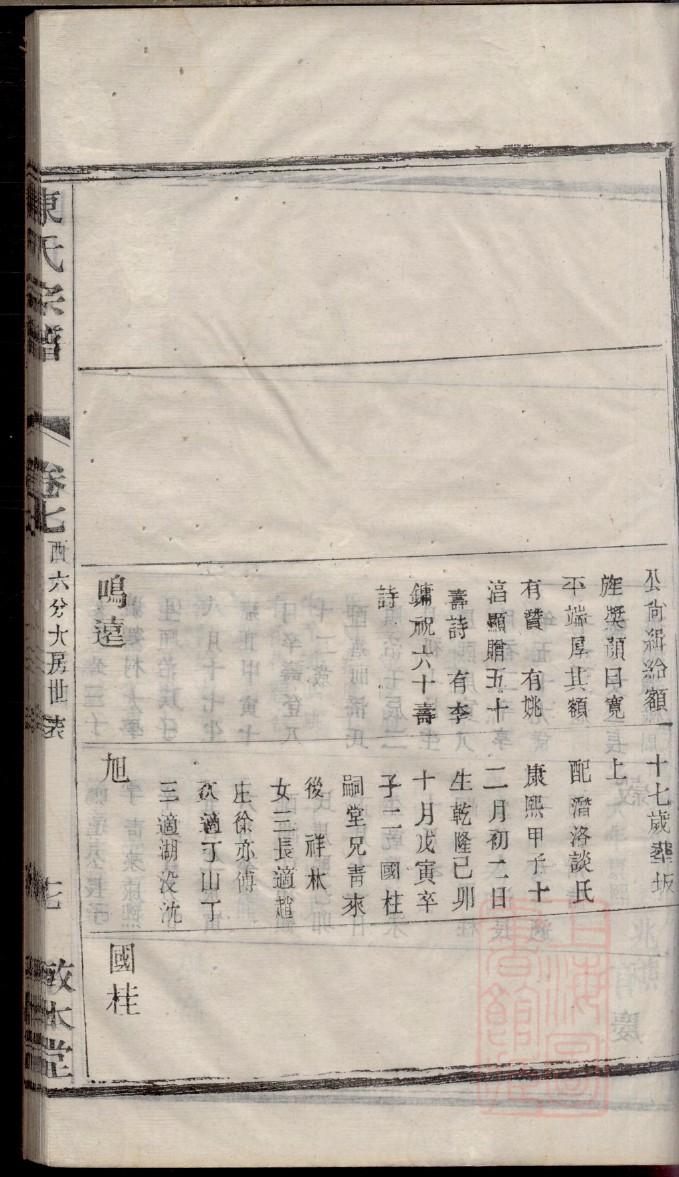 公尙緝給額
旌奬顏曰寬
平端厚其額
有贊 有姚
淯顯贈五十
壽詩 有李
鏞祝六十壽
詩
鳴遠
十七歲葬坂
上
配潛洛談氏
康熙甲子十
二月初二日
生乾隆己卯
十月戊寅卒
子二國柱
嗣堂兄靑來
後 祥林
女三長適趙
庄徐亦傅
次適丁山丁
三適湖没沈
旭
國桂
陳氏宗譜
卷七
西六分大房世表
七
敬本堂